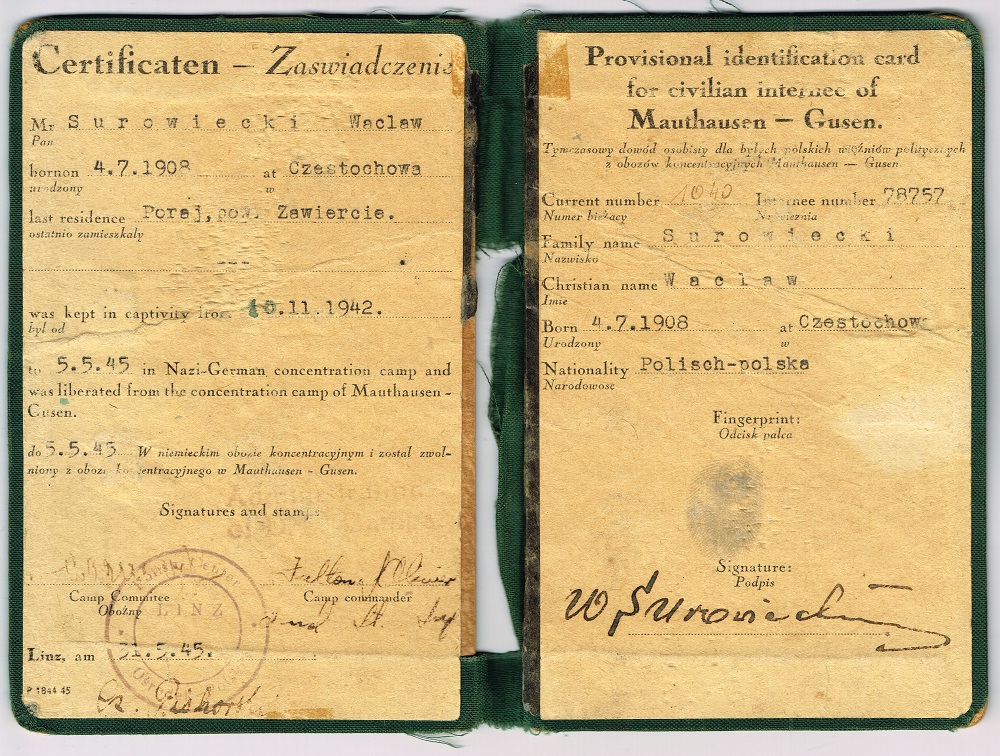 Certificaten – Zaswiadczenie
Mr Surowiecki Waclaw
Pan
bornon 4.7.1908 at Czestochowa
urodzony w
last residence Poraj, pow. Zawiercie.
ostatnio zamieszkaly
---
was kept in captivity from 10.11.1942.
byl od
to 5.5.45 in Nazi-German concentration camp and
was liberated from the concentration camp of Mauthausen -
Gusen.
do 5.5.45 W niemieckim obozie koncentracyjnym i zostal zwol-
niony z obozu koncentracyjnego w Mauthausen - Gusen.
Signatures and stamps
Camp Commitee Camp commander
Obozny
LINZ
Linz, am 31.5.45.
P 1844 45
Provisional identification card
for civilian internee of
Mauthausen – Gusen.
Tymczasowy dowód osobisty dla bylych polskich więźniów politycznych
z obozów koncentracyjnych Mauthausen — Gusen
Current number 1040 Internee number 78757
Numer bieżacy Nr wieznia
Family name Surowiecki
Nazwisko
Christian name Waclaw
Imie
Born 4.7.1908 at Czestochowa
Urodzony w
Nationality Polisch-polska
Narodowosc
Fingerprint:
Odcisk palca
Signature:
Podpis
W Surowiecki